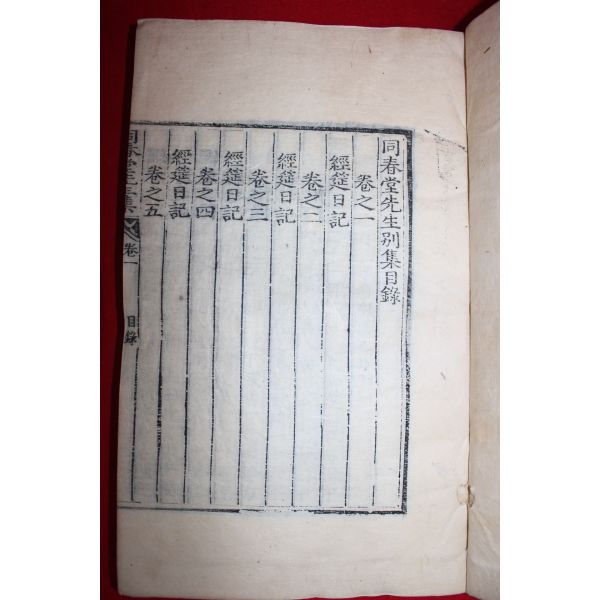 同春堂先生別集目錄
卷之一
經筵日記
卷之二
經筵日記
卷之三
經筵日記
卷之四
經筵日記
卷之五
同春堂先生別集
卷一
目錄